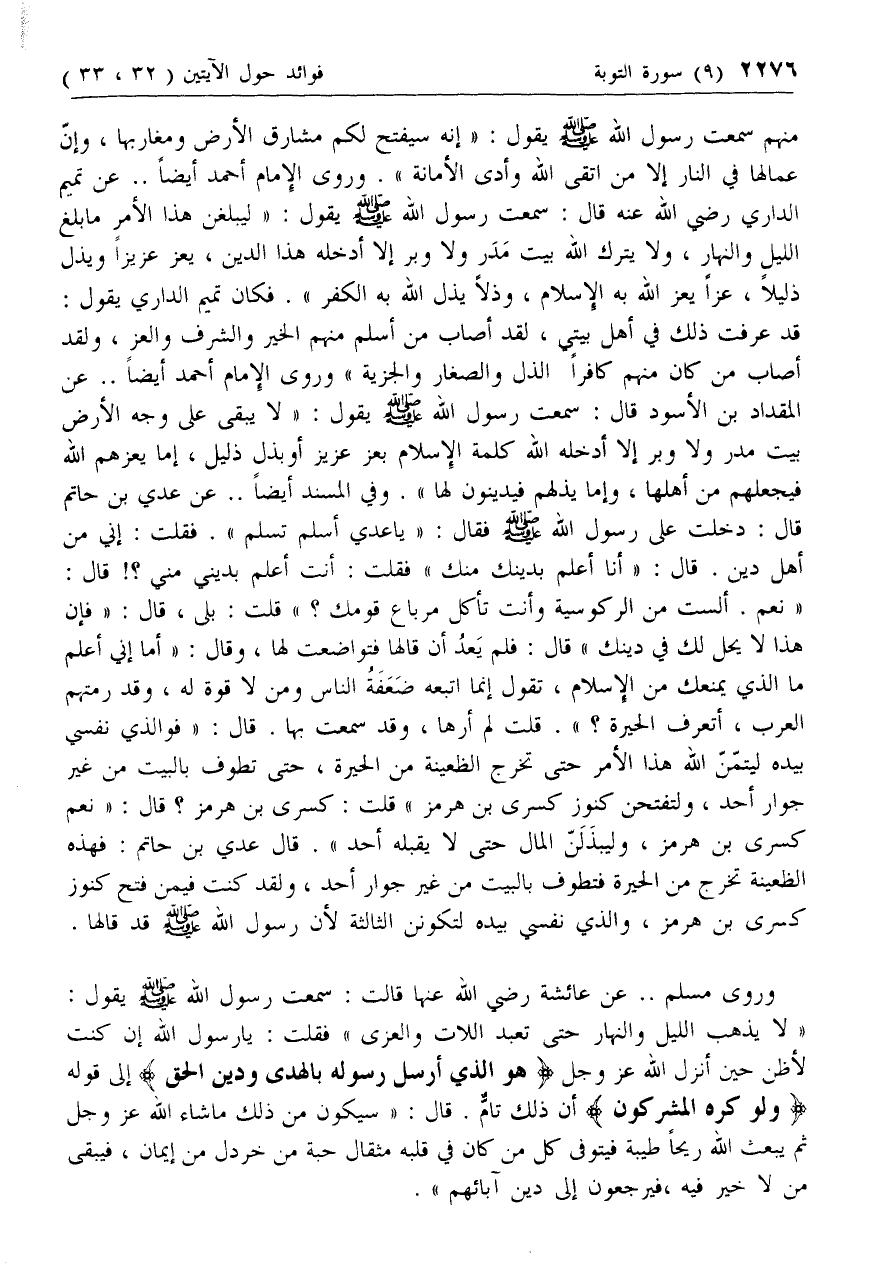 ٢٢٧٦ (٩) سورة التوبة فوائد حول الآيتين ( ٣٢ ، ٣٣ )
منهم سمعت رسول الله ﷺ يقول : « إنه سيفتح لكم مشارق الأرض ومغاربها ، وإنّ
عمالها في النار إلا من اتقى الله وأدى الأمانة » . وروى الإمام أحمد أيضاً .. عن تميم
الداري رضي الله عنه قال : سمعت رسول الله ﷺ يقول : « ليبلغن هذا الأمر مابلغ
الليل والنهار ، ولا يترك الله بيت مَدَر ولا وبر إلا أدخله هذا الدين ، يعز عزيزاً ويذل
ذليلاً ، عزاً يعز الله به الإسلام ، وذلاً يذل الله به الكفر » . فكان تميم الداري يقول :
قد عرفت ذلك في أهل بيتي ، لقد أصاب من أسلم منهم الخير والشرف والعز ، ولقد
أصاب من كان منهم كافراً الذل والصغار والجزية » وروى الإمام أحمد أيضاً .. عن
المقداد بن الأسود قال : سمعت رسول الله ﷺ يقول : « لا يبقى على وجه الأرض
بيت مدر ولا وبر إلا أدخله الله كلمة الإسلام بعز عزيز أوبذل ذليل ، إما يعزهم الله
فيجعلهم من أهلها ، وإما يذلهم فيدينون لها » . وفي المسند أيضاً .. عن عدي بن حاتم
قال : دخلت على رسول الله ﷺ فقال : « ياعدي أسلم تسلم » . فقلت : إني من
أهل دين . قال : « أنا أعلم بدينك منك » فقلت : أنت أعلم بديني مني ؟! قال :
« نعم . ألست من الركوسية وأنت تأكل مرباع قومك ؟ » قلت : بلى ، قال : « فإن
هذا لا يحل لك في دينك » قال : فلم يَعدُ أن قالها فتواضعت لها ، وقال : « أما إني أعلم
ما الذي يمنعك من الإسلام ، تقول إنما اتبعه ضَعَفَةُ الناس ومن لا قوة له ، وقد رمتهم
العرب ، أتعرف الحيرة ؟ » . قلت لم أرها ، وقد سمعت بها . قال : « فوالذي نفسي
بيده ليتمّنّ الله هذا الأمر حتى تخرج الظعينة من الحيرة ، حتى تطوف بالبيت من غير
جوار أحد ، ولتفتحن كنوز كسرى بن هرمز » قلت : كسرى بن هرمز ؟ قال : « نعم
كسرى بن هرمز ، وليبذَلَنّ المال حتى لا يقبله أحد » . قال عدي بن حاتم : فهذه
الظعينة تخرج من الحيرة فتطوف بالبيت من غير جوار أحد ، ولقد كنت فيمن فتح كنوز
كسرى بن هرمز ، والذي نفسي بيده لتكونن الثالثة لأن رسول الله ﷺ قد قالها .
وروى مسلم .. عن عائشة رضي الله عنها قالت : سمعت رسول الله ﷺ يقول :
« لا يذهب الليل والنهار حتى تعبد اللات والعزى » فقلت : يارسول الله إن كنت
لأظن حين أنزل الله عز وجل ﴿ هو الذي أرسل رسوله بالهدى ودين الحق ﴾ إلى قوله
﴿ ولو كره المشركون ﴾ أن ذلك تامٌّ . قال : « سيكون من ذلك ماشاء الله عز وجل
ثم يبعث الله ريحاً طيبة فيتوفى كل من كان في قلبه مثقال حبة من خردل من إيمان ، فيبقى
من لا خير فيه ،فيرجعون إلى دين آبائهم » .